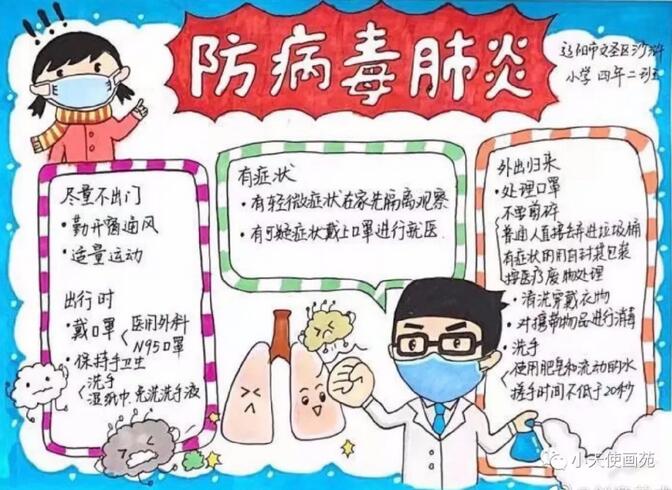 防病毒肺炎
辽阳市文圣区沙浒
小学 四年二班
尽量不出门
• 勤开窗通风
• 适量运动
出行时
• 戴口罩 医用外科
N95口罩
• 保持手卫生
洗手
湿纸巾,免洗洗手液
有症状
• 有轻微症状在家先隔离观察
• 有可疑症状戴上口罩进行就医.
外出归来
• 处理口罩
不要剪碎
普通人直接丢弃进垃圾桶
有症状的用自封袋包装
按医疗废物处理
• 清洗穿戴衣物
• 对携带物品进行消毒
• 洗手
使用肥皂和流动的水
搓手时间不低于20秒
小天使画苑